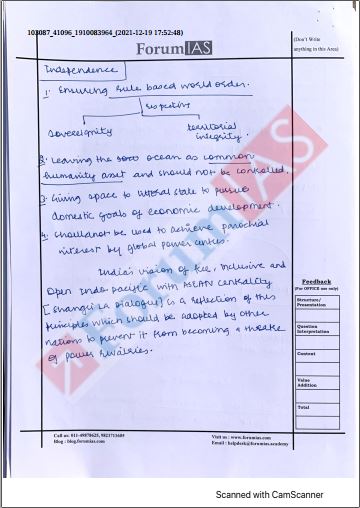 103087_41096_1910083964_(2021-12-19 17:52:48)
ForumIAS
(Don't Write
anything in this Area)
Independence
1. Ensuring rule based world order.
respecting
Sovereignity
territorial
integrity.
2. Leaving the ocean as common
humanity asset and should not be controlled.
3. Giving space to littoral state to pursue
domestic goals of economic development.
4. Shall not be used to achieve parochial
interest by global power
India's vision of free, inclusive and
Open Indo pacific with ASEAN centrality
[Shangri La Dialogue] is a reflection of this
principles which should be adopted by other
nations to prevent it from becoming a theatre
of power rivalries.
ForumIAS
Feedback
(For OFFICE use only)
Structure/
Presentation
Question
Interpretation
Content
Value
Addition
Total
Call us: 011-49878625, 9821711605
Blog : blog.forumias.com
Visit us : www.forumias.com
Email : helpdesk@forumias.academy
Scanned with CamScanner